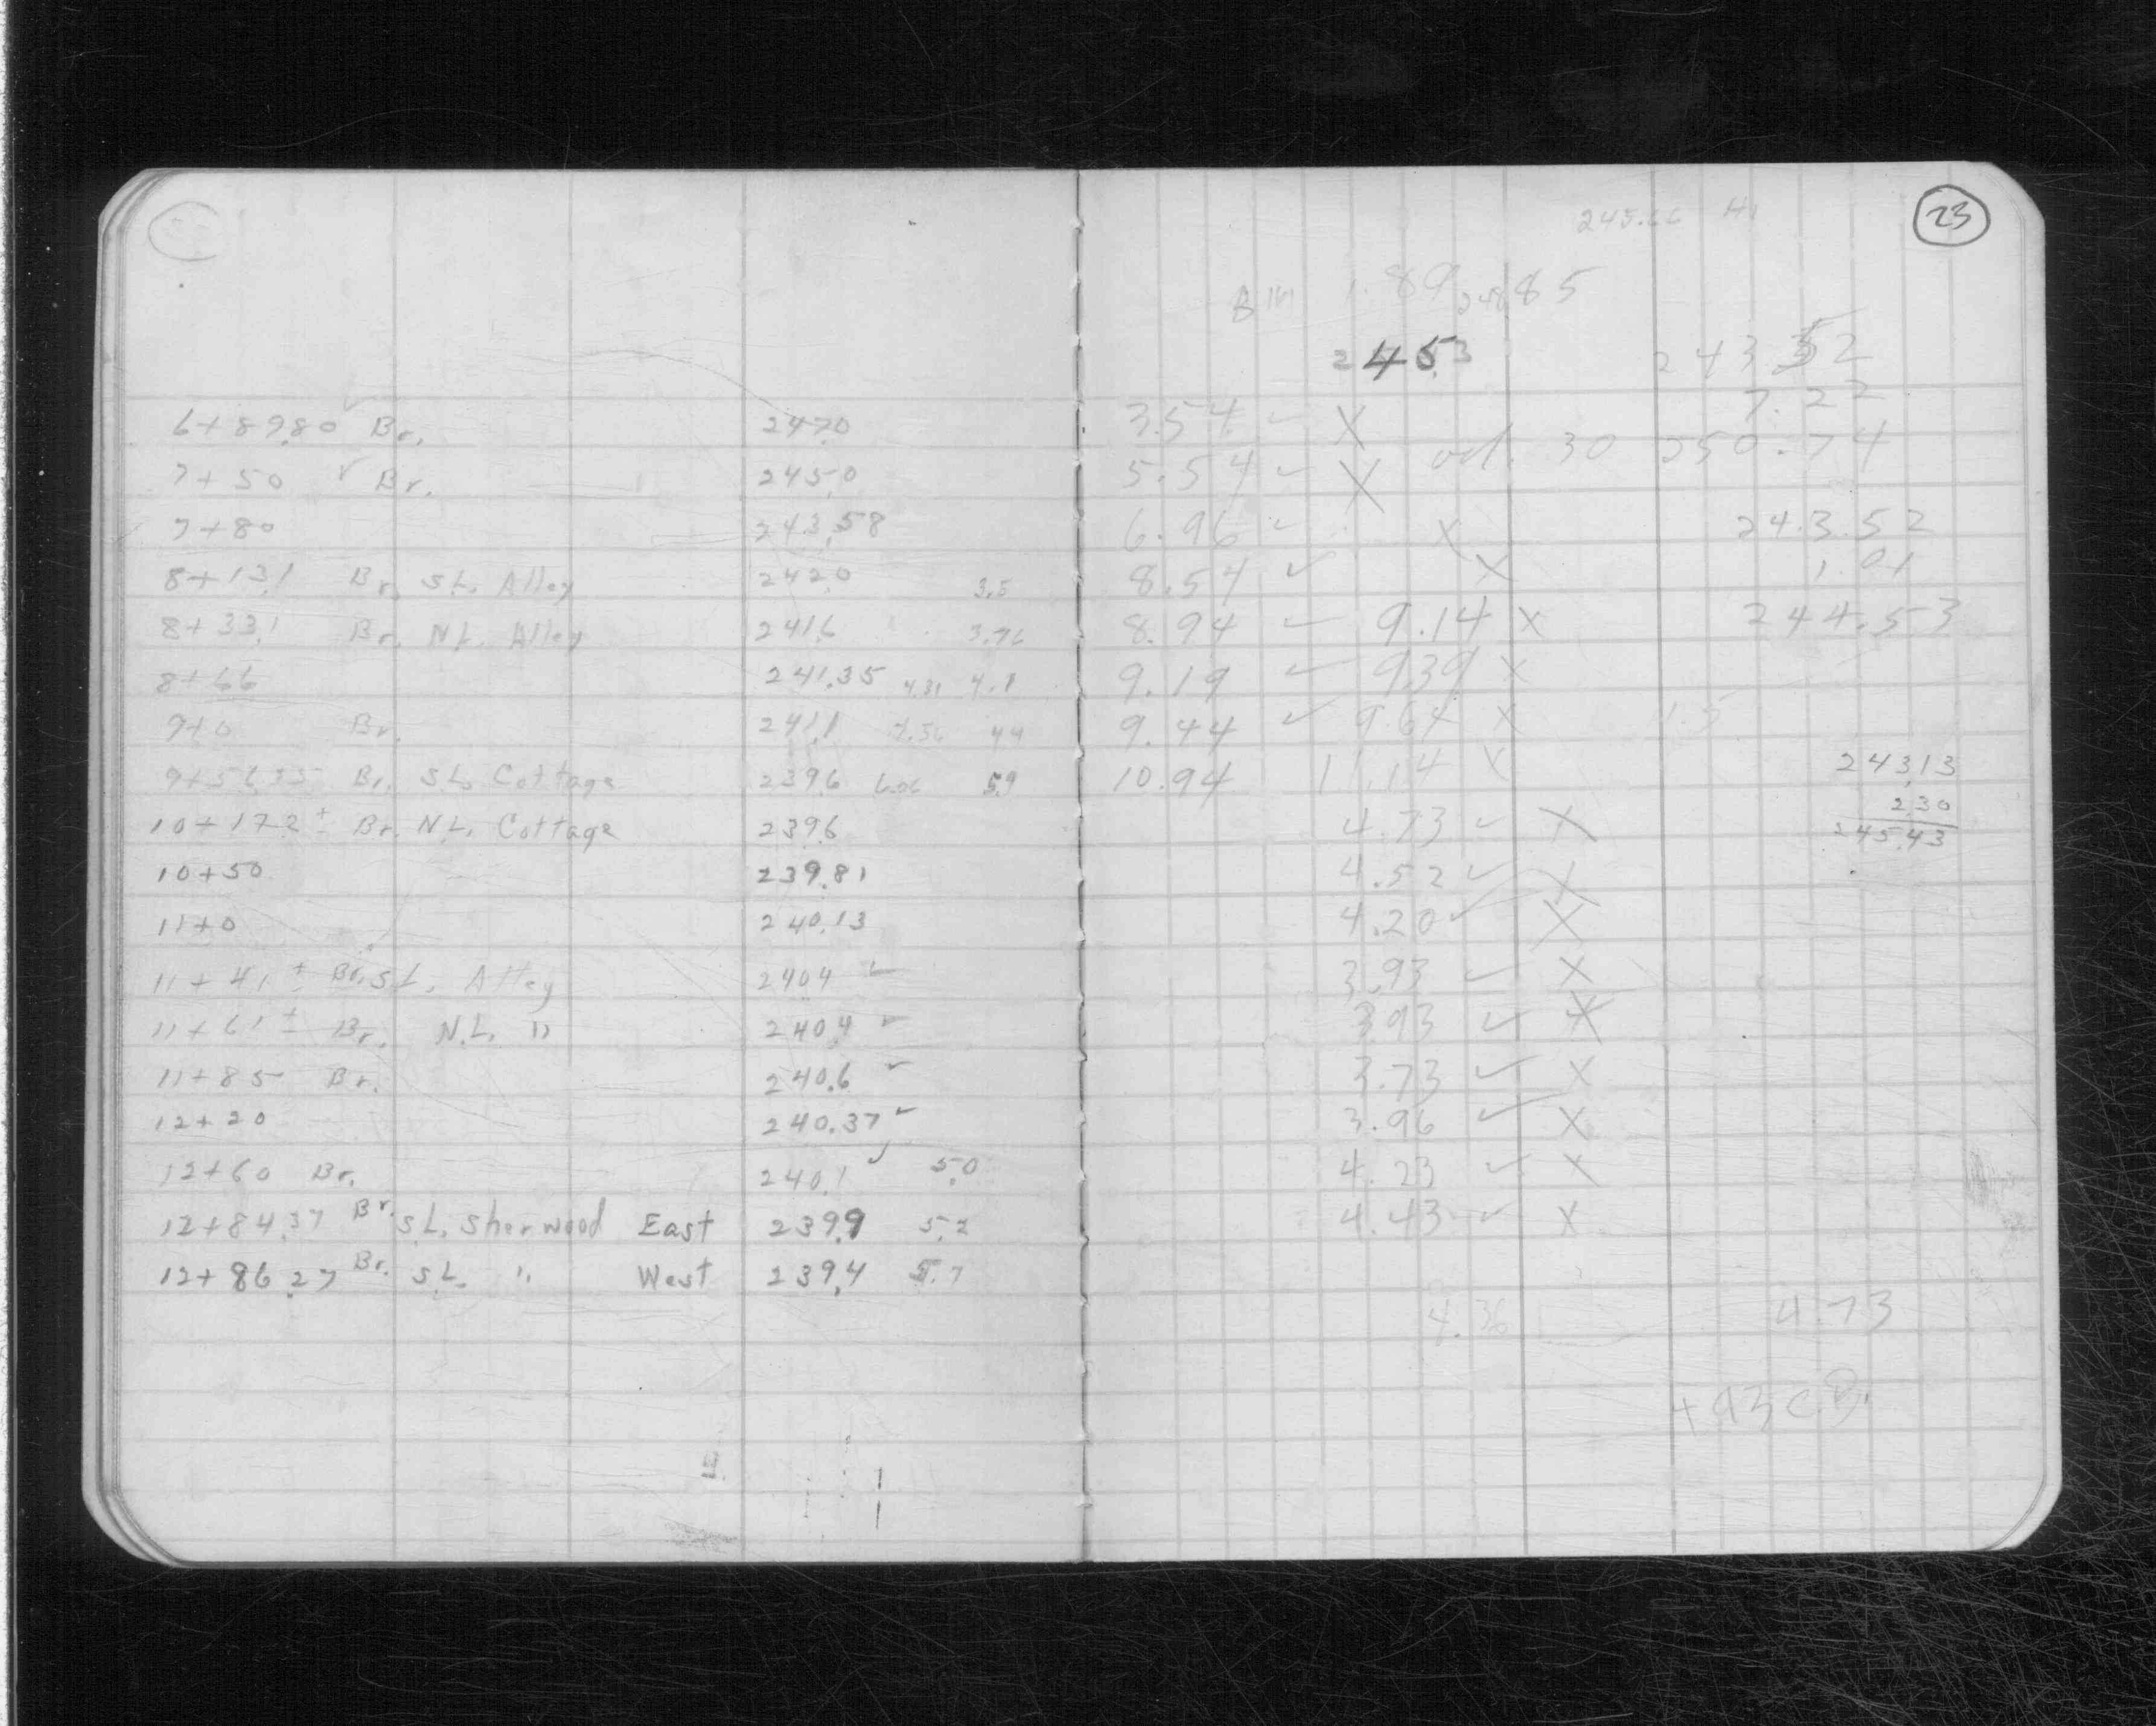 23
245.66 HI
BM 1.89 248 85
245.3 243.52
7.22
6+89.80 ✓ Br. 247.0 3.54 ✓ X
od. 30 250.74
7+50 ✓ Br. 245.0 5.54 ✓ X
7+80 243.58 6.96 ✓ X 243.52
8+13.1 Br. S.L. Alley 242.0 3.5 8.54 ✓ X 1.01
8+33.1 Br. N.L. Alley 241.6 3.76 8.94 ✓ 9.14 X 244.53
8+66 241.35 4.31 4.1 9.19 ✓ 9.39 X
9+0 Br. 241.1 4.56 4.4 9.44 ✓ 9.64 X 1.5
9+56.35 Br. S.L. Cottage 239.6 6.06 5.9 10.94 11.14 X 243.13
2.30
10+17.2± Br. N.L. Cottage 239.6 4.73 ✓ X 245.43
10+50 239.81 4.52 ✓ X
11+0 240.13 4.20 ✓ X
11+41± Br. S.L. Alley 240.4 ✓ 3.93 ✓ X
11+61± Br. N.L. " 240.4 ✓ 3.93 ✓ X
11+85 Br. 240.6 ✓ 3.73 ✓ X
12+20 240.37 ✓ 3.96 ✓ X
12+60 Br. 240.1 ✓ 5.0 4.23 ✓ X
12+84.37 Br. S.L. Sherwood East 239.9 5.2 4.43 ✓ X
12+86.27 Br. S.L. " West 239.4 5.7
4.36 4.73
+93 CB.